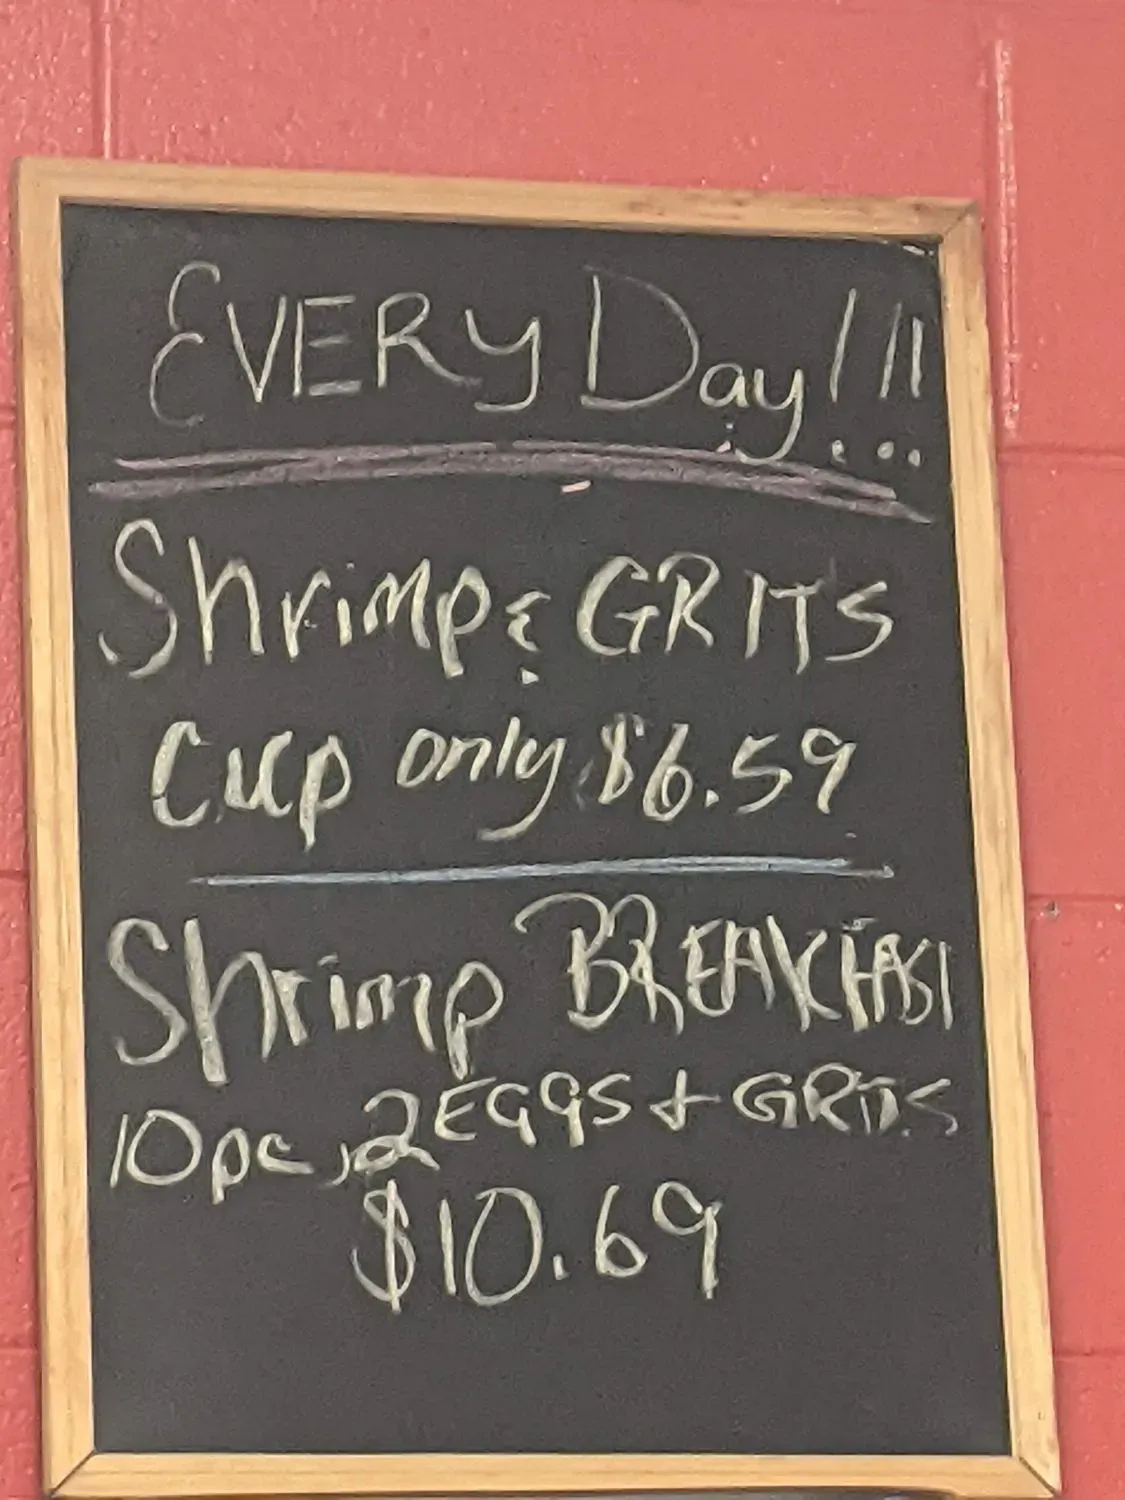 EVERY Day!!!
Shrimp & GRITS
Cup only $6.59
Shrimp BREAKFAST
10pc, 2 EGGS + GRITS
$10.69